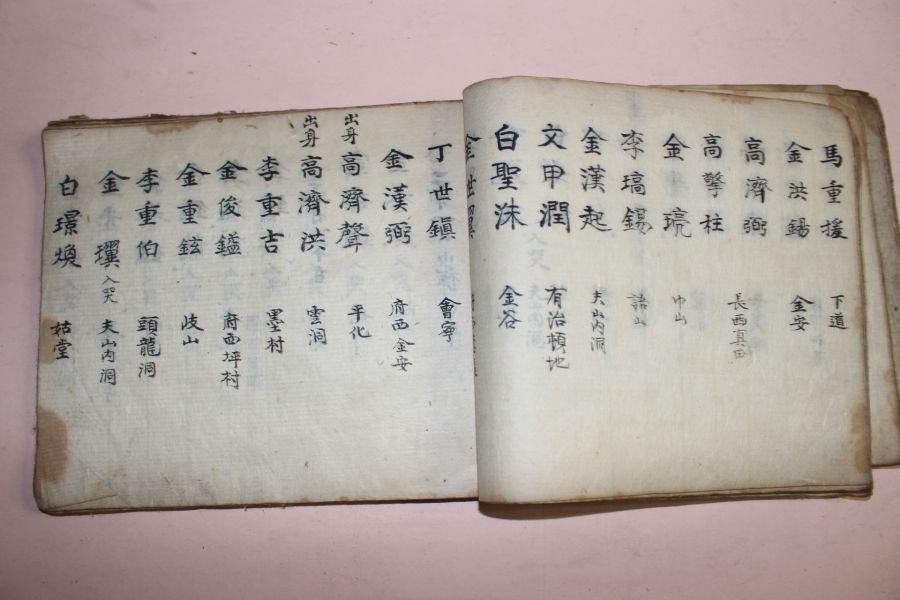 馬重援 下道
金洪錫 金安
高濟弼 長西真田
高擎柱
金琉 巾山
李瑀錫 諸山
金漢起 夫山內洞
文甲潤 有治頓地
白聖洙 金谷
金世
丁世鎭 會寧
金漢弼 府西金安
出身 高濟聲 平化
出身 高濟洪 雲洞
李重吉 墨村
金俊鎰 府西坪村
金重鉉 歧山
李重伯 頭龍洞
金瓘 入哭 夫山內洞
白璟煥 姑堂